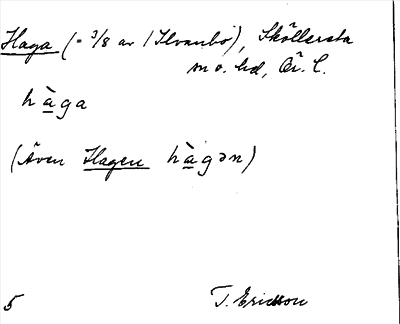 Haga (= 3/8 av 1 Ilvanbo), Sköllersta
sn o. hd, Ör. l.
hàga
(Även Hagen hàgən)
5 T. Ericsson